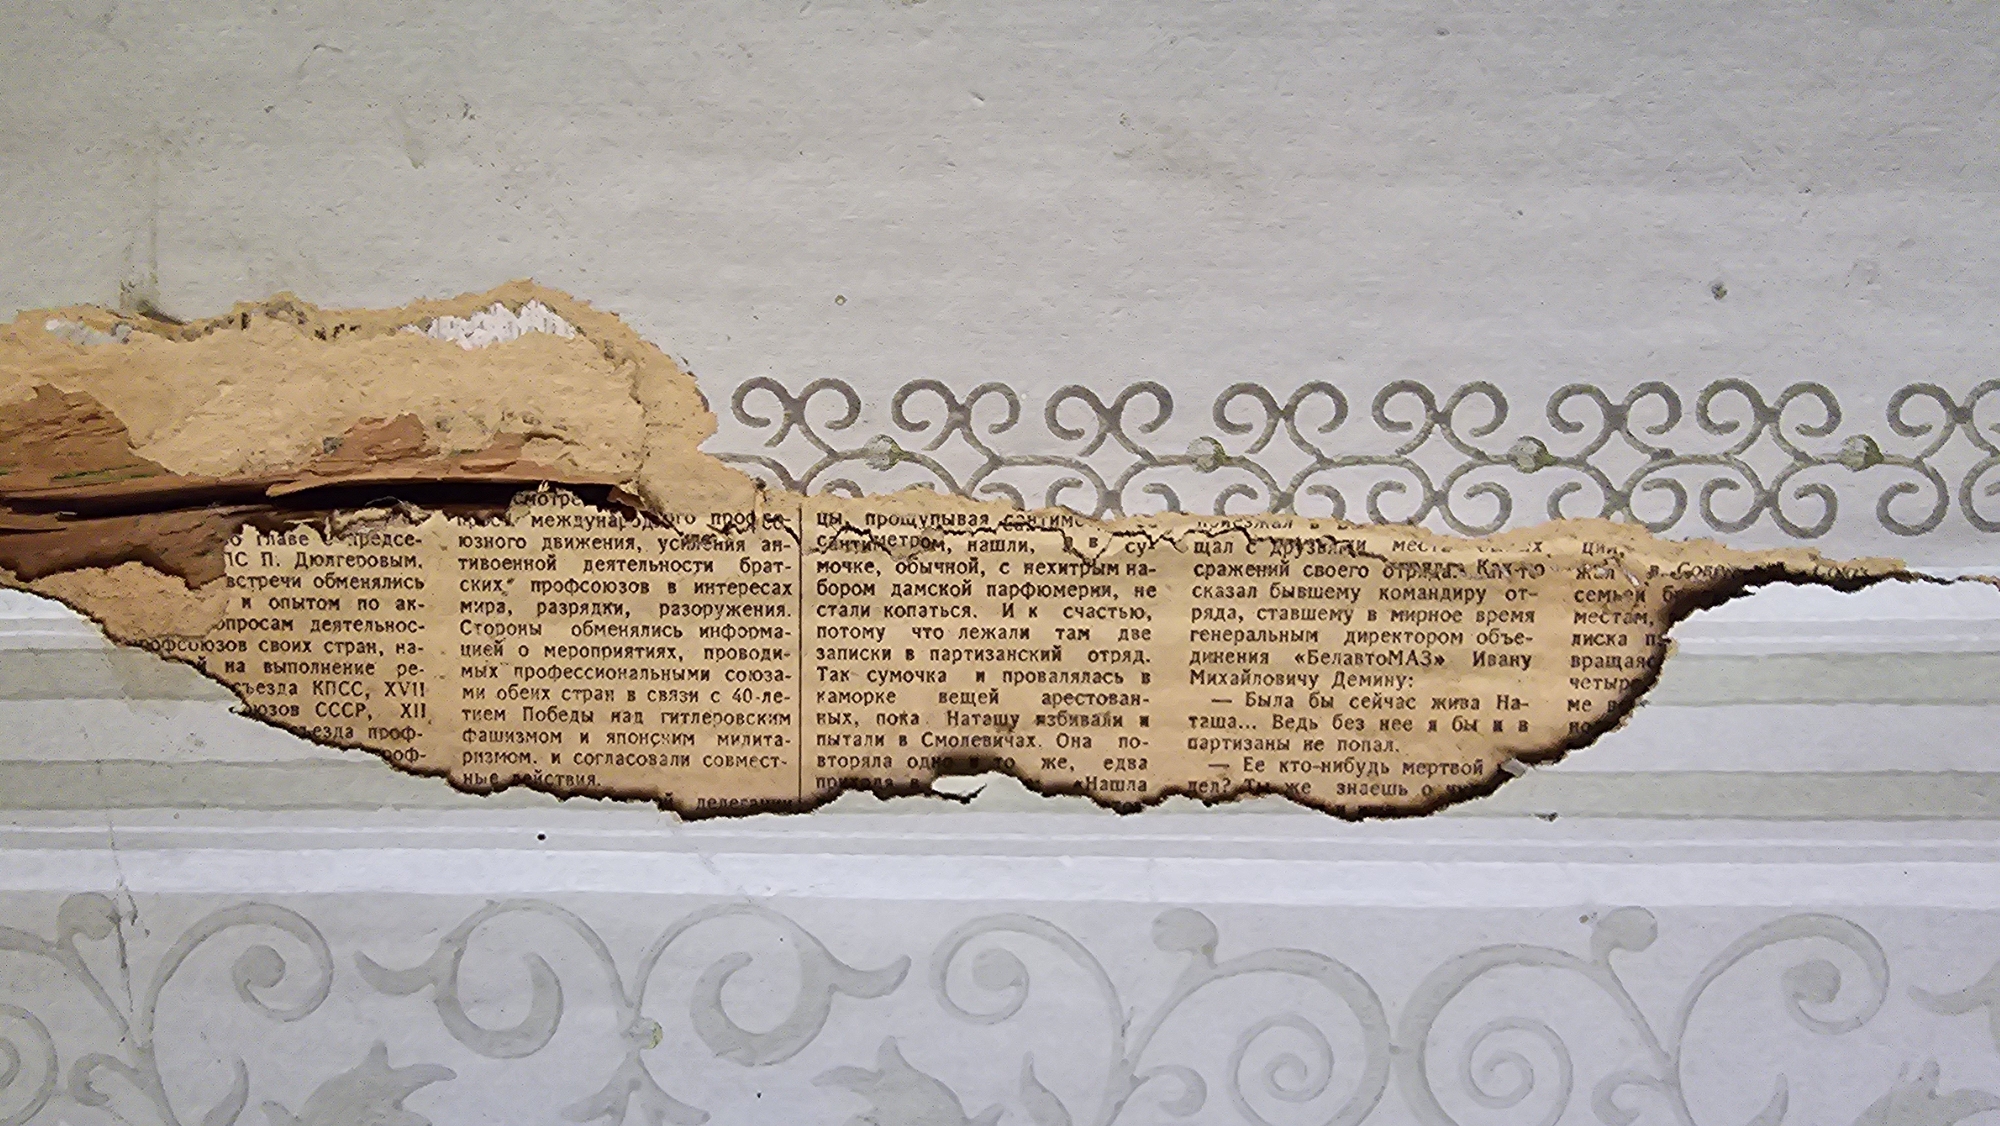 главе с предсе-
ПС П. Дюлгеровым.
встречи обменялись
и опытом по ак-
опросам деятельнос-
рофсоюзов своих стран, на-
й на выполнение ре-
съезда КПСС, XVII
оюзов СССР, XII
ъезда проф-
роф-
смотре
международного профсо-
юзного движения, усиления ан-
тивоенной деятельности брат-
ских профсоюзов в интересах
мира, разрядки, разоружения.
Стороны обменялись информа-
цией о мероприятиях, проводи-
мых профессиональными союза-
ми обеих стран в связи с 40-ле-
тием Победы над гитлеровским
фашизмом и японским милита-
ризмом, и согласовали совмест-
ные действия.
й делегации
цы, прощупывая сантиме
сантиметром, нашли, а в су-
мочке, обычной, с нехитрым на-
бором дамской парфюмерии, не
стали копаться. И к счастью,
потому что лежали там две
записки в партизанский отряд.
Так сумочка и провалялась в
каморке вещей арестован-
ных, пока Наташу избивали и
пытали в Смолевичах. Она по-
вторяла одно и то же, едва
«Нашла
приезжал в
щал с друзьями места
сражений своего отряда. Как-то
сказал бывшему командиру от-
ряда, ставшему в мирное время
генеральным директором объе-
динения «БелавтоМАЗ» Ивану
Михайловичу Демину:
— Была бы сейчас жива На-
таша... Ведь без нее я бы и в
партизаны не попал.
— Ее кто-нибудь мертвой
дел? Ты же знаешь о
ции,
жал в Советский Союз
семьей
местам,
лиска
вращаяс
четыр
ме